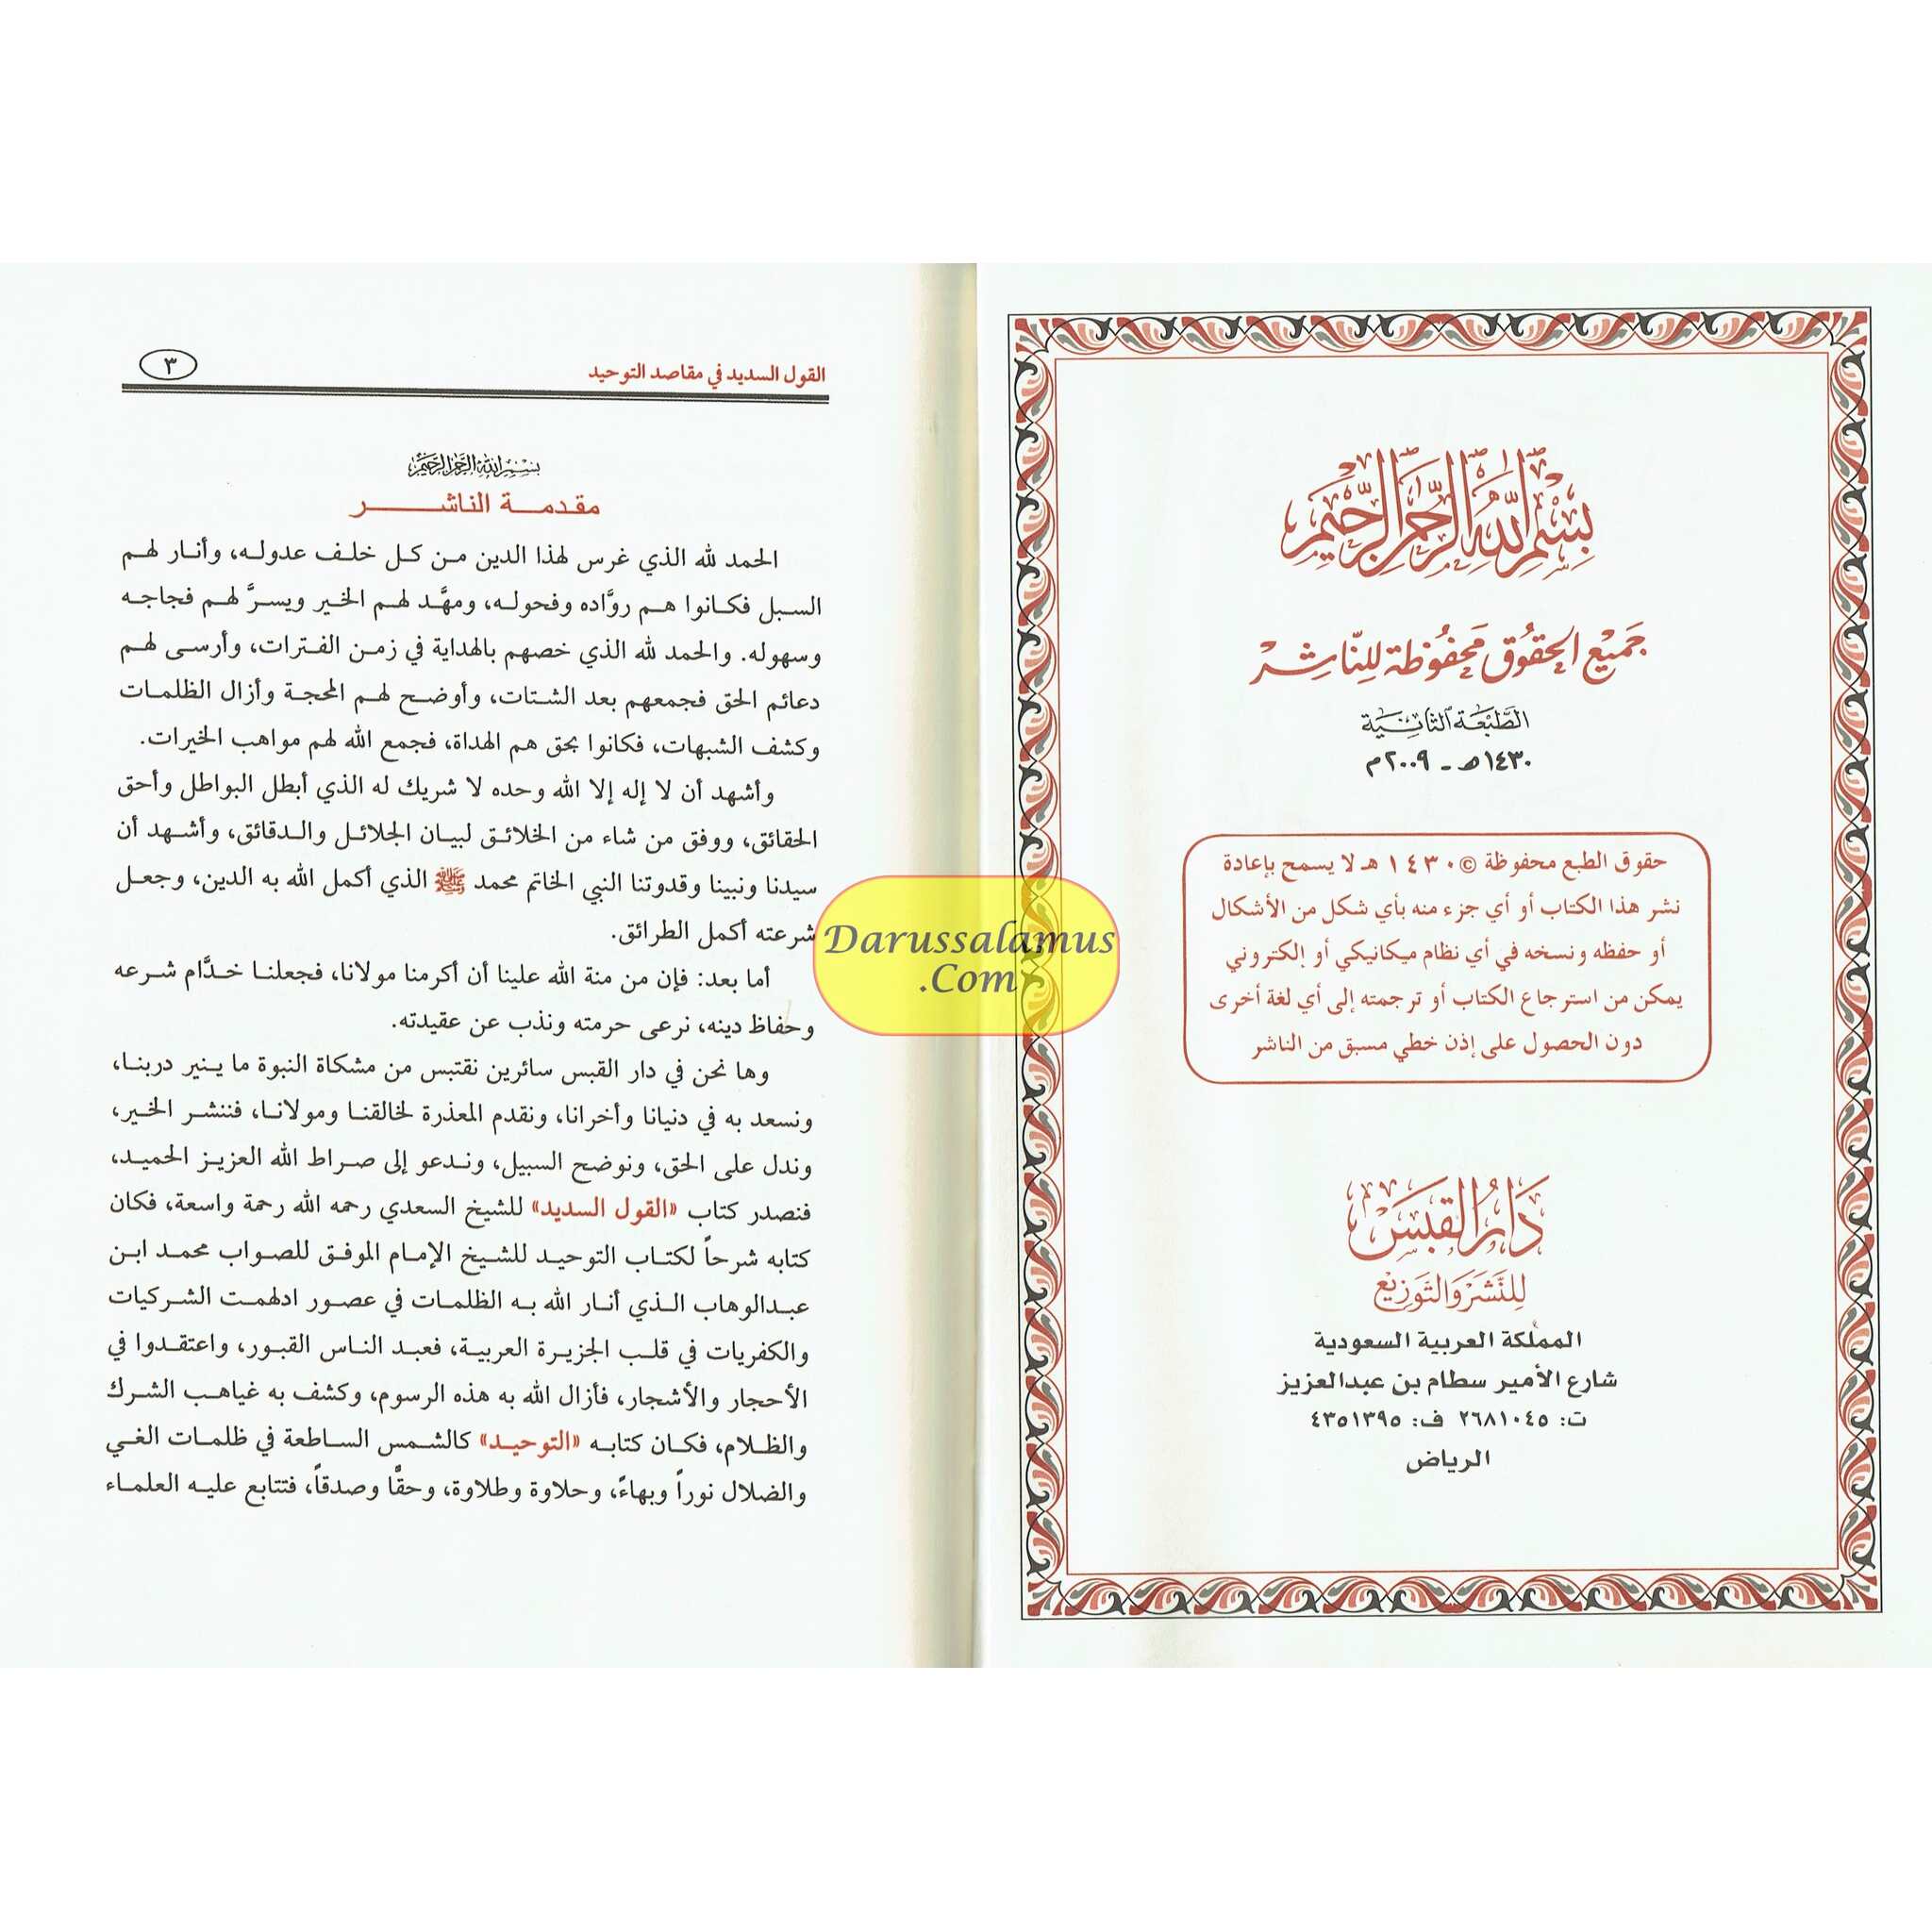 بِسْمِ اللَّهِ الرَّحْمَنِ الرَّحِيمِ
جَمِيْع الحُقُوْق مَحْفُوْظة لِلنّاشِرْ
الطَّبْعَة الثَّانِيَة
١٤٣٠هـ - ٢٠٠٩م
حقوق الطبع محفوظة © ١٤٣٠ هـ لا يسمح بإعادة
نشر هذا الكتاب أو أي جزء منه بأي شكل من الأشكال
أو حفظه ونسخه في أي نظام ميكانيكي أو إلكتروني
يمكن من استرجاع الكتاب أو ترجمته إلى أي لغة أخرى
دون الحصول على إذن خطي مسبق من الناشر
دَارُ القَبَسْ
لِلنَّشرِ وَالتَّوَزِيْع
المملكة العربية السعودية
شارع الأمير سطام بن عبدالعزيز
ت: ٢٦٨١٠٤٥ ف: ٤٣٥١٣٩٥
الرياض
القول السديد في مقاصد التوحيد
٣
بسم الله الرحمن الرحيم
مقدمة الناشر
الحمد لله الذي غرس لهذا الدين من كل خلف عدوله، وأنار لهم
السبل فكانوا هم روَّاده وفحوله، ومهَّد لهم الخير ويسرَّ لهم فجاجه
وسهوله. والحمد لله الذي خصهم بالهداية في زمن الفترات، وأرسى لهم
دعائم الحق فجمعهم بعد الشتات، وأوضح لهم المحجة وأزال الظلمات
وكشف الشبهات، فكانوا بحق هم الهداة، فجمع الله لهم مواهب الخيرات.
وأشهد أن لا إله إلا الله وحده لا شريك له الذي أبطل البواطل وأحق
الحقائق، ووفق من شاء من الخلائق لبيان الجلائل والدقائق، وأشهد أن
سيدنا ونبينا وقدوتنا النبي الخاتم محمد ﷺ الذي أكمل الله به الدين، وجعل
شرعته أكمل الطرائق.
أما بعد: فإن من منة الله علينا أن أكرمنا مولانا، فجعلنا خدَّام شرعه
وحفاظ دينه، نرعى حرمته ونذب عن عقيدته.
وها نحن في دار القبس سائرين نقتبس من مشكاة النبوة ما ينير دربنا،
ونسعد به في دنيانا وأخرانا، ونقدم المعذرة لخالقنا ومولانا، فننشر الخير،
وندل على الحق، ونوضح السبيل، وندعو إلى صراط الله العزيز الحميد،
فنصدر كتاب «القول السديد» للشيخ السعدي رحمه الله رحمة واسعة، فكان
كتابه شرحاً لكتاب التوحيد للشيخ الإمام الموفق للصواب محمد ابن
عبدالوهاب الذي أنار الله به الظلمات في عصور ادلهمت الشركيات
والكفريات في قلب الجزيرة العربية، فعبد الناس القبور، واعتقدوا في
الأحجار والأشجار، فأزال الله به هذه الرسوم، وكشف به غياهب الشرك
والظلام، فكان كتابه «التوحيد» كالشمس الساطعة في ظلمات الغي
والضلال نوراً وبهاءً، وحلاوة وطلاوة، وحقًّا وصدقاً، فتتابع عليه العلماء
Darussalamus
.Com